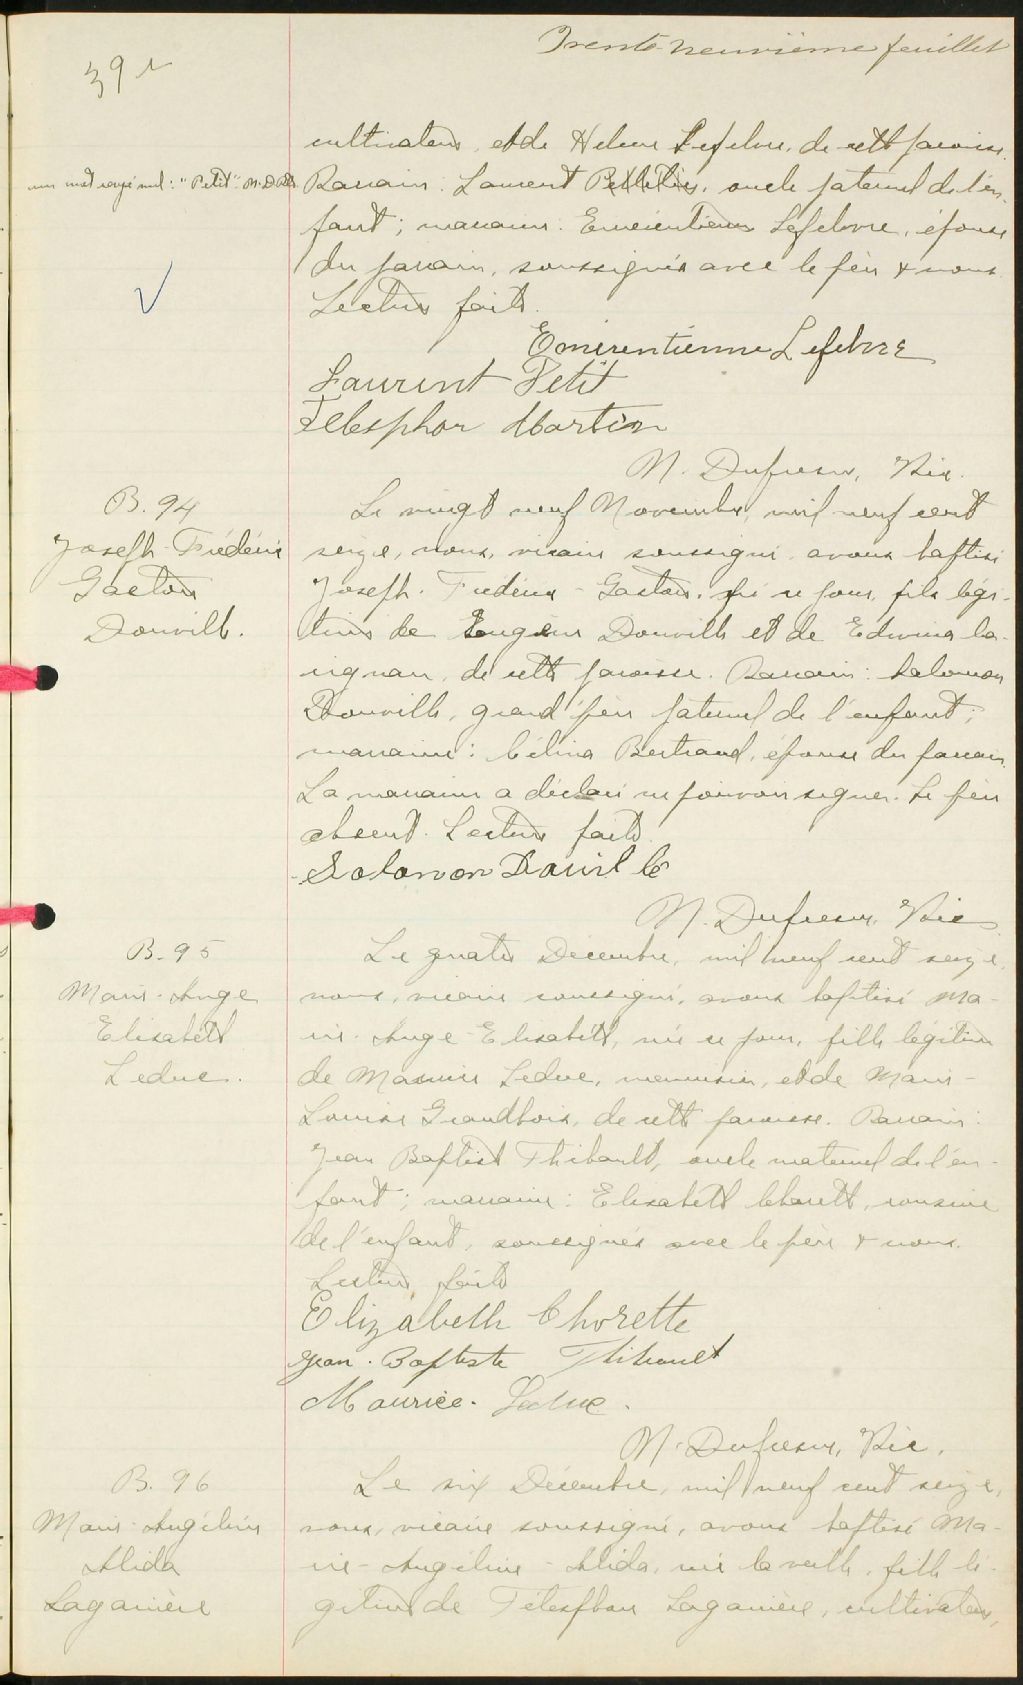 Trente-neuvième feuillet
39
cultivateur, et de Helene Lefebvre, de cette paroisse.
un mot rayé nul: "Petit" N. D.
Parrain: Laurent Pelletier, oncle paternel de l'en-
fant; marraine: Emérentienne Lefebvre, épouse
du parrain, soussignés avec le père & nous.
Lecture faite.
Emerentienne Lefebvre
Laurent Petit
Telesphor Martin
N. Dufresne, Vic.
B. 94
Joseph-Frédéric
Gaston
Douville.
Le vingt neuf Novembre, mil neuf cent
seize, nous, vicaire soussigné avons baptisé
Joseph-Frédéric-Gaston, né ce jour, fils légi-
time de Eugène Douville et de Edwina La-
vignan, de cette paroisse. Parrain: Salomon
Douville, grand'père paternel de l'enfant;
marraine: Célina Bertrand, épouse du parrain.
La marraine a déclaré ne pouvoir signer. Le père
absent. Lecture faite.
Solomon Douville
N. Dufresne, Vic.
B. 95
Marie-Ange
Elisabeth
Leduc.
Le quatre Décembre, mil neuf cent seize,
nous, vicaire soussigné, avons baptisé Ma-
rie-Ange-Elisabeth, née ce jour, fille légitime
de Maurice Leduc, menuisier, et de Marie-
Louise Grandbois, de cette paroisse. Parrain:
Jean Baptiste Thibault, oncle maternel de l'en-
fant; marraine: Elisabeth Chorett, cousine
de l'enfant, soussignés avec le père & nous.
Lecture faite
Elizabeth Chorette
Jean-Baptiste Thibault
Maurice Leduc.
N. Dufresne, Vic.
B. 96
Marie-Angéline
Alida
Laganière
Le six Décembre, mil neuf cent seize,
nous, vicaire soussigné, avons baptisé Ma-
rie-Angéline-Alida, née la veille, fille lé-
gitime de Télesphore Laganière, cultivateur,